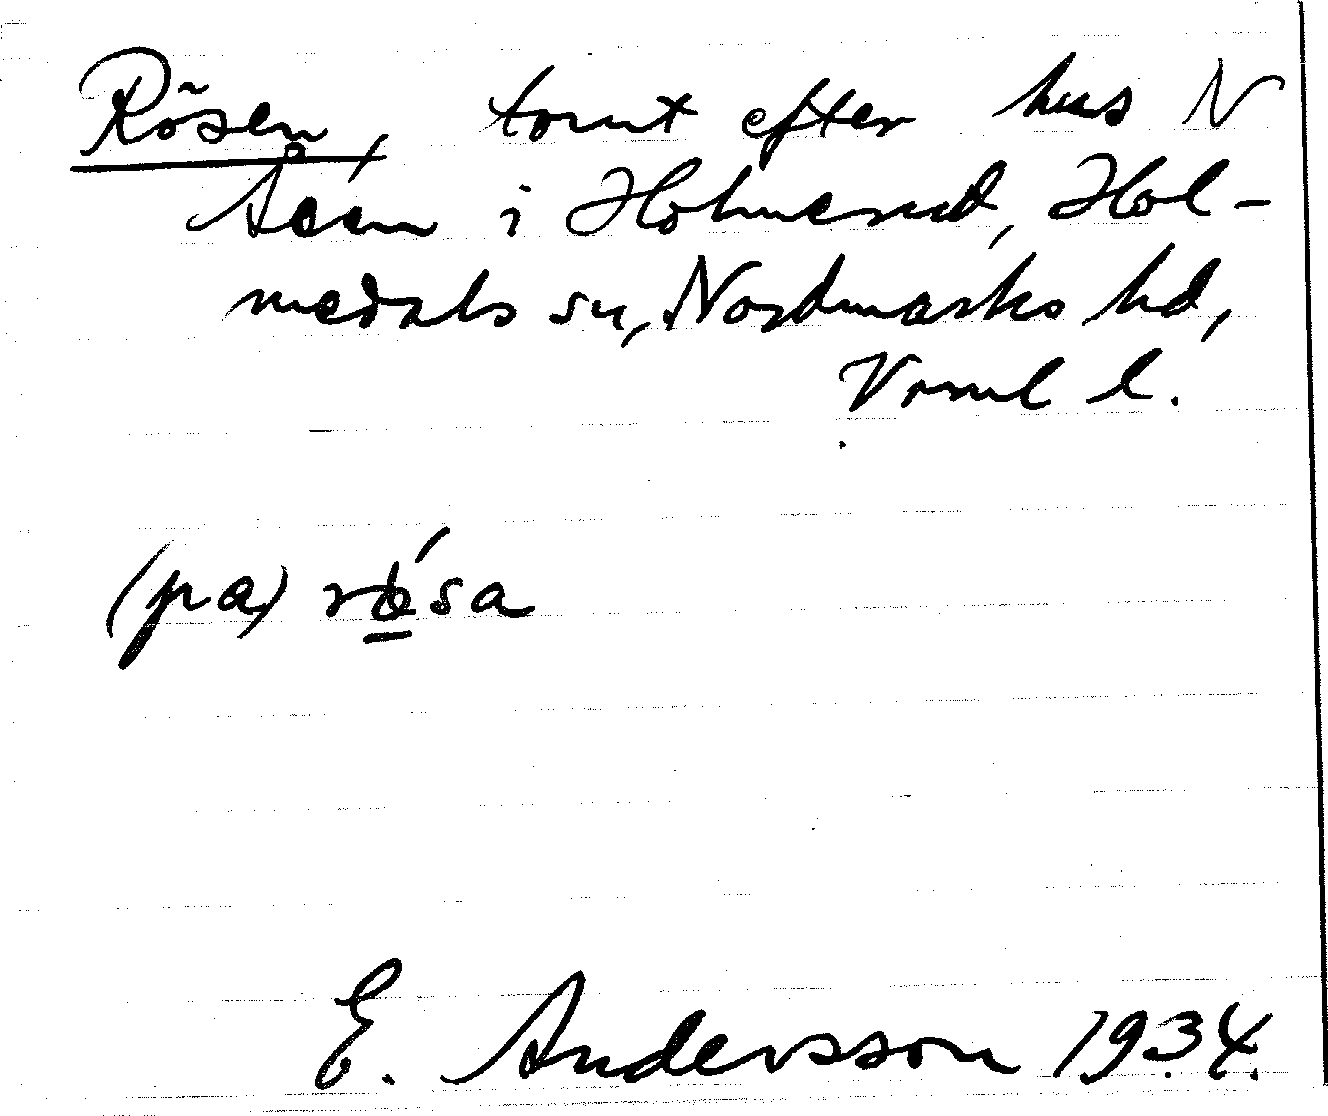 Rösen, tomt efter hus N
Åsen i Holmerud, Hol-
medals sn, Nordmarks hd,
Vrml l.
(pa) rö́sa
E. Andersson 1934.